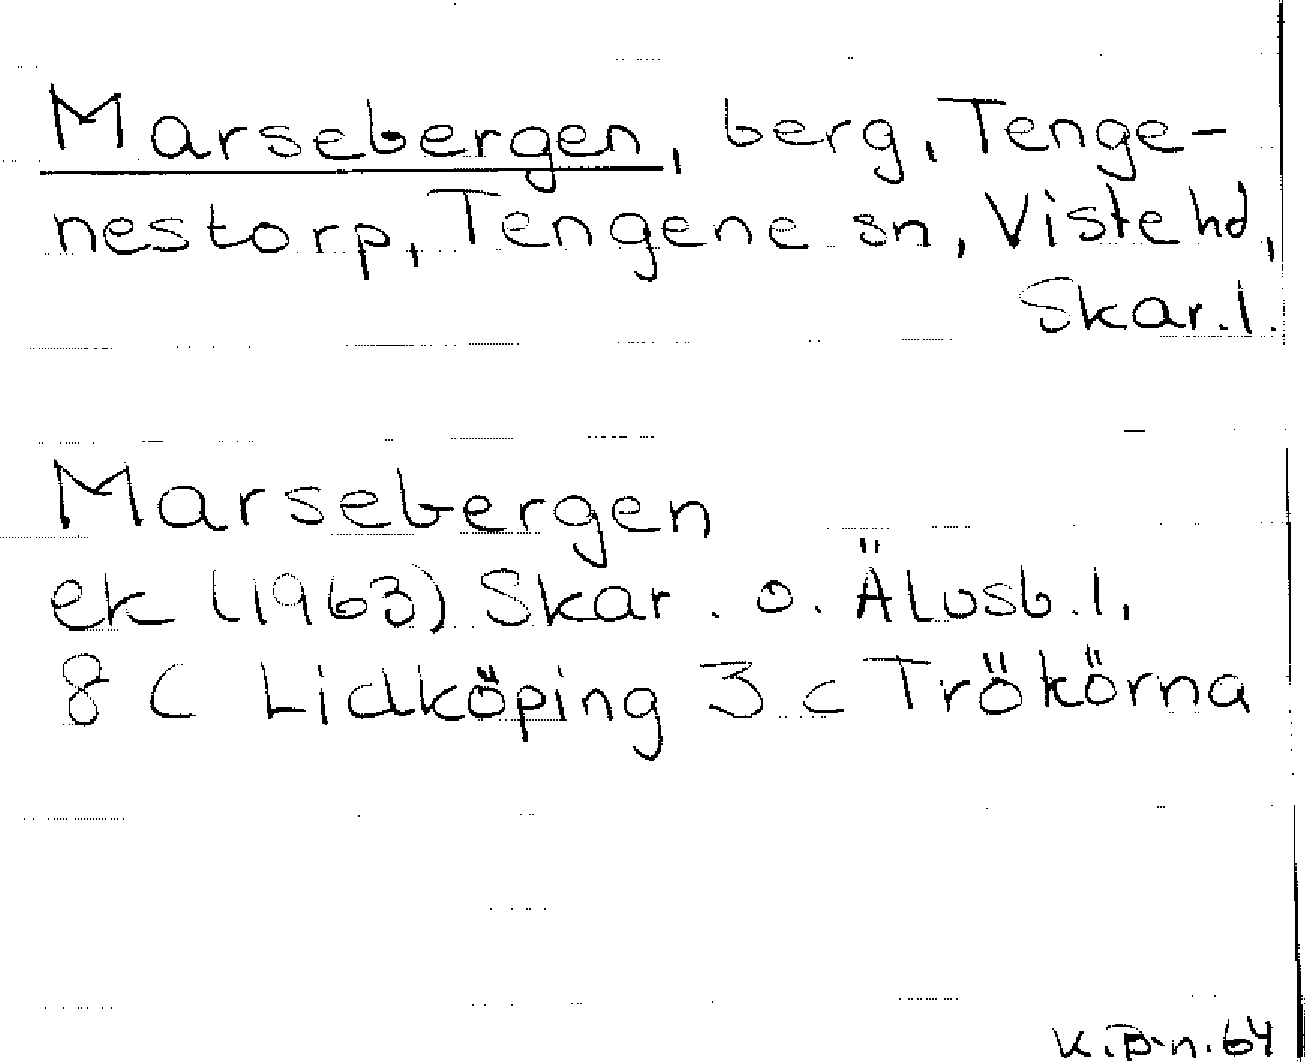 Marsebergen, berg, Tenge-
nestorp, Tengene sn, Viste hd,
Skar. l.
Marsebergen
ek (1963) Skar. o. Älvsb. l.
8 C Lidköping 3 c Trökörna
K. B-n. 64